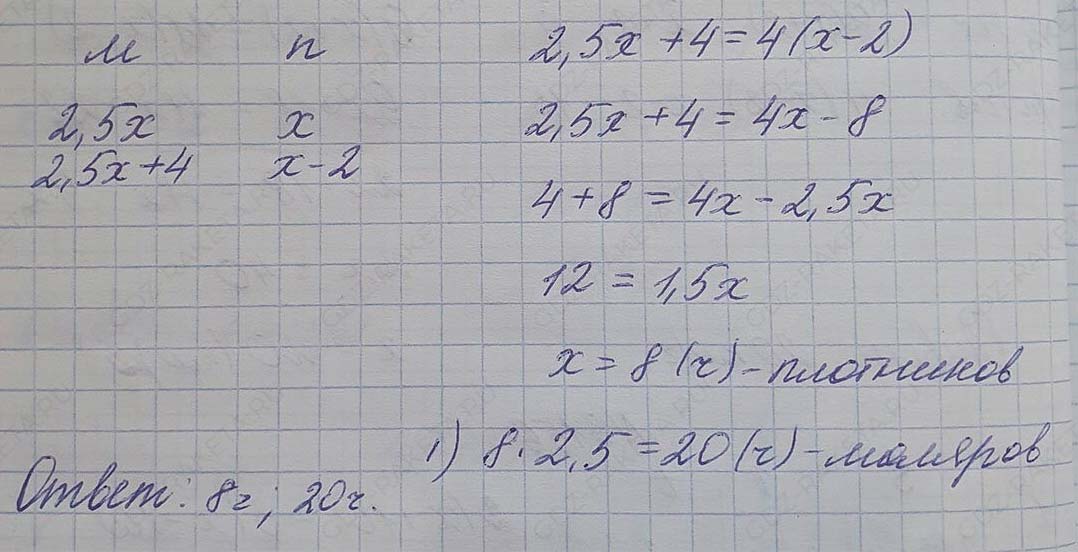 м п
2,5х х
2,5х+4 х-2
2,5х+4=4(х-2)
2,5х+4=4х-8
4+8=4х-2,5х
12=1,5х
х=8(ч)-плотников
1) 8·2,5=20(ч)-маляров
Ответ: 8ч; 20ч.